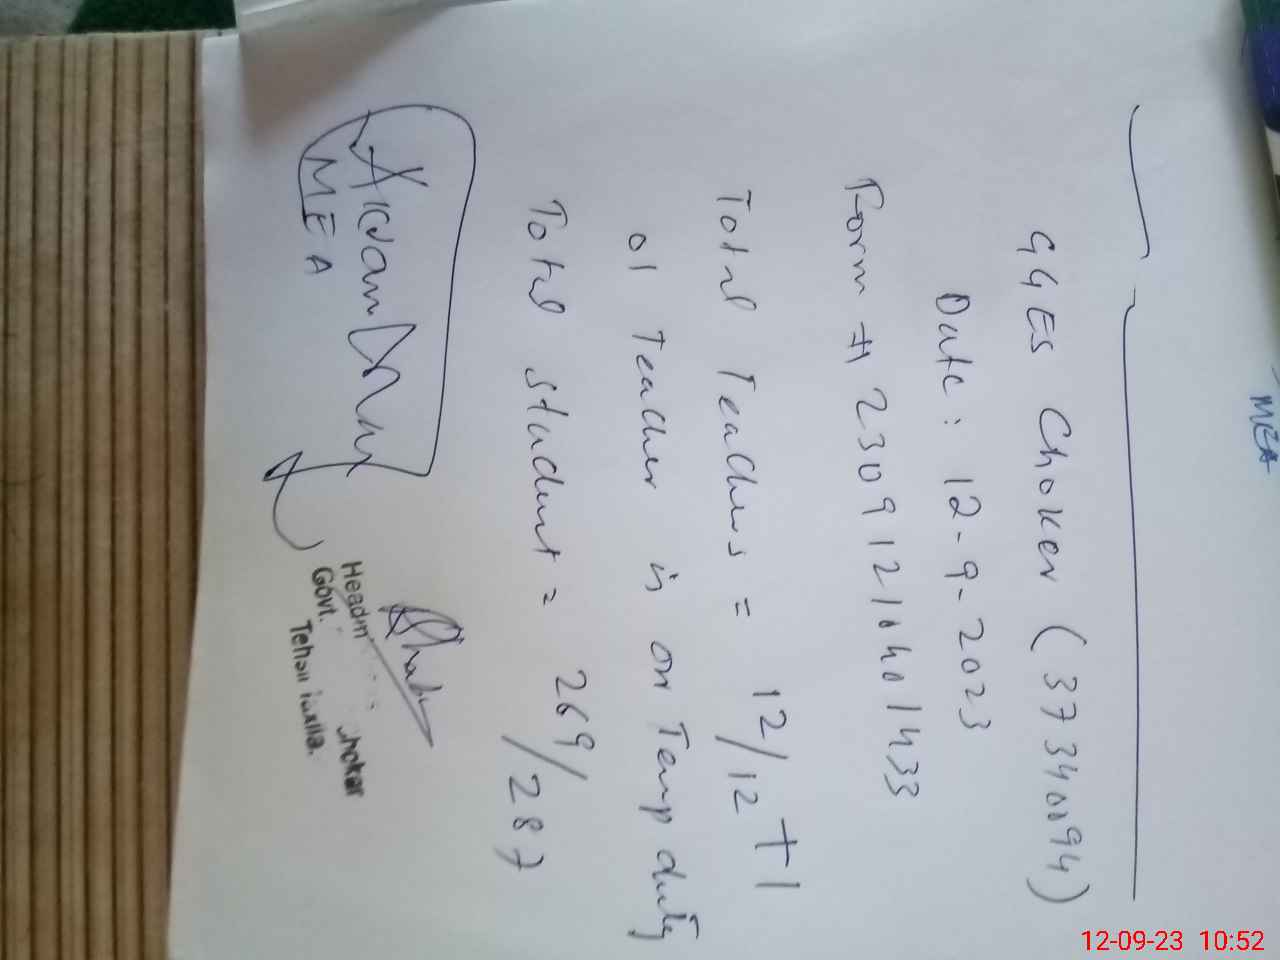 MEA
GGES Choker (37340094)
Date: 12-9-2023
Form # 23091210401433
Total Teachers = 12/12 + 1
01 Teacher is on Temp duty
Total student = 269/287
MEA
Govt. Chokar
Tehsil Taxila.
12-09-23 10:52